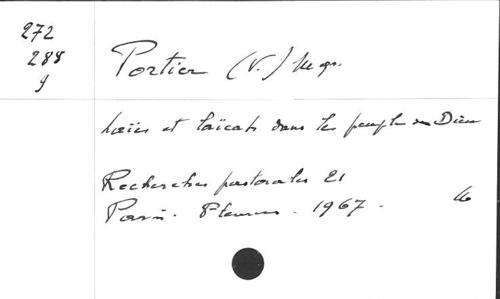 272
288
y
Portier (V.) Mgr.
Laïcs et laïcat dans le peuple de Dieu
Recherches pastorales 21
Paris. 1967.